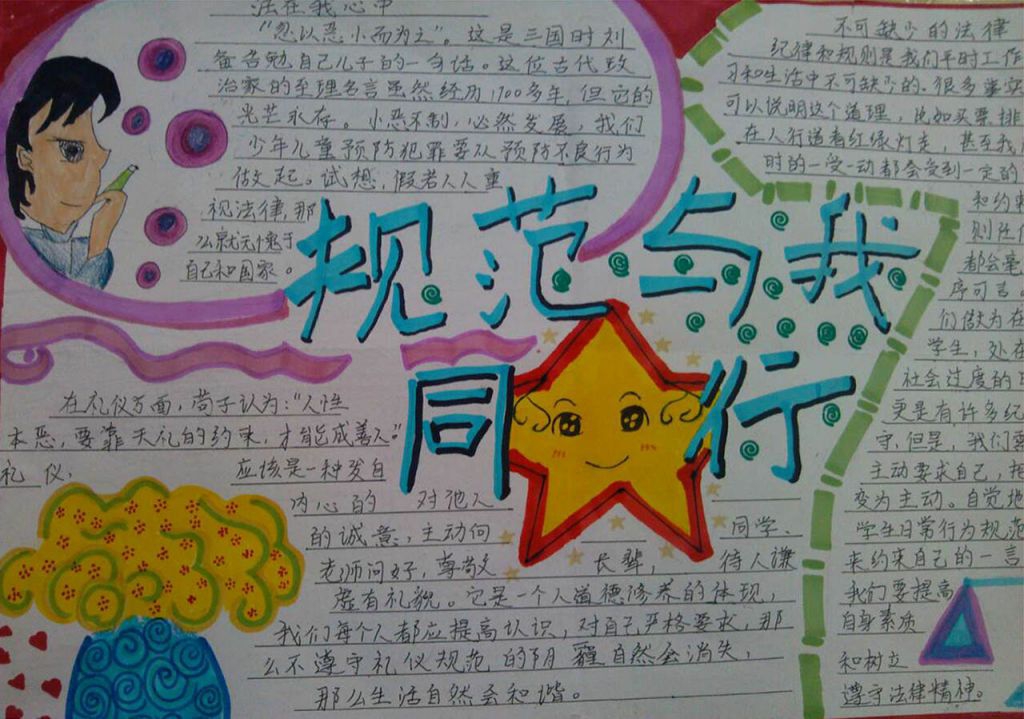 法在我心中
“忽以恶小而为之”。这是三国时刘
备告勉自己儿子的一句话。这位古代政
治家的至理名言虽然经历1700多年,但它的
光芒永存。小恶不制,必然发展,我们
少年儿童预防犯罪要从预防不良行为
做起。试想,假若人人重
视法律,那
么就无愧于
自己和国家。
规范与我
同行
在礼仪方面,荀子认为:“人性
本恶,要靠天礼的约束,才能成善人”
礼仪, 应该是一种发自
内心的 对他人
的诚意,主动向 同学、
老师问好,尊敬 长辈, 待人谦
虚有礼貌。它是一个人道德修养的体现,
我们每个人都应提高认识,对自己严格要求,那
么不遵守礼仪规范的阴霾自然会消失,
那么生活自然会和谐。
不可缺少的法律
纪律和规则是我们平时工作
习和生活中不可缺少的.很多事实
可以说明这个道理,比如买票排
在人行道看红绿灯走,甚至我
时的一受一动都会受到一定的
和约束
则任何
都会毫
序可言。
们做为在
学生,处在
社会过度的
更是有许多纪
守.但是,我们要
主动要求自己,把
变为主动。自觉地
学生日常行为规范
来约束自己的一言
我们要提高
自身素质
和树立
遵守法律精神。